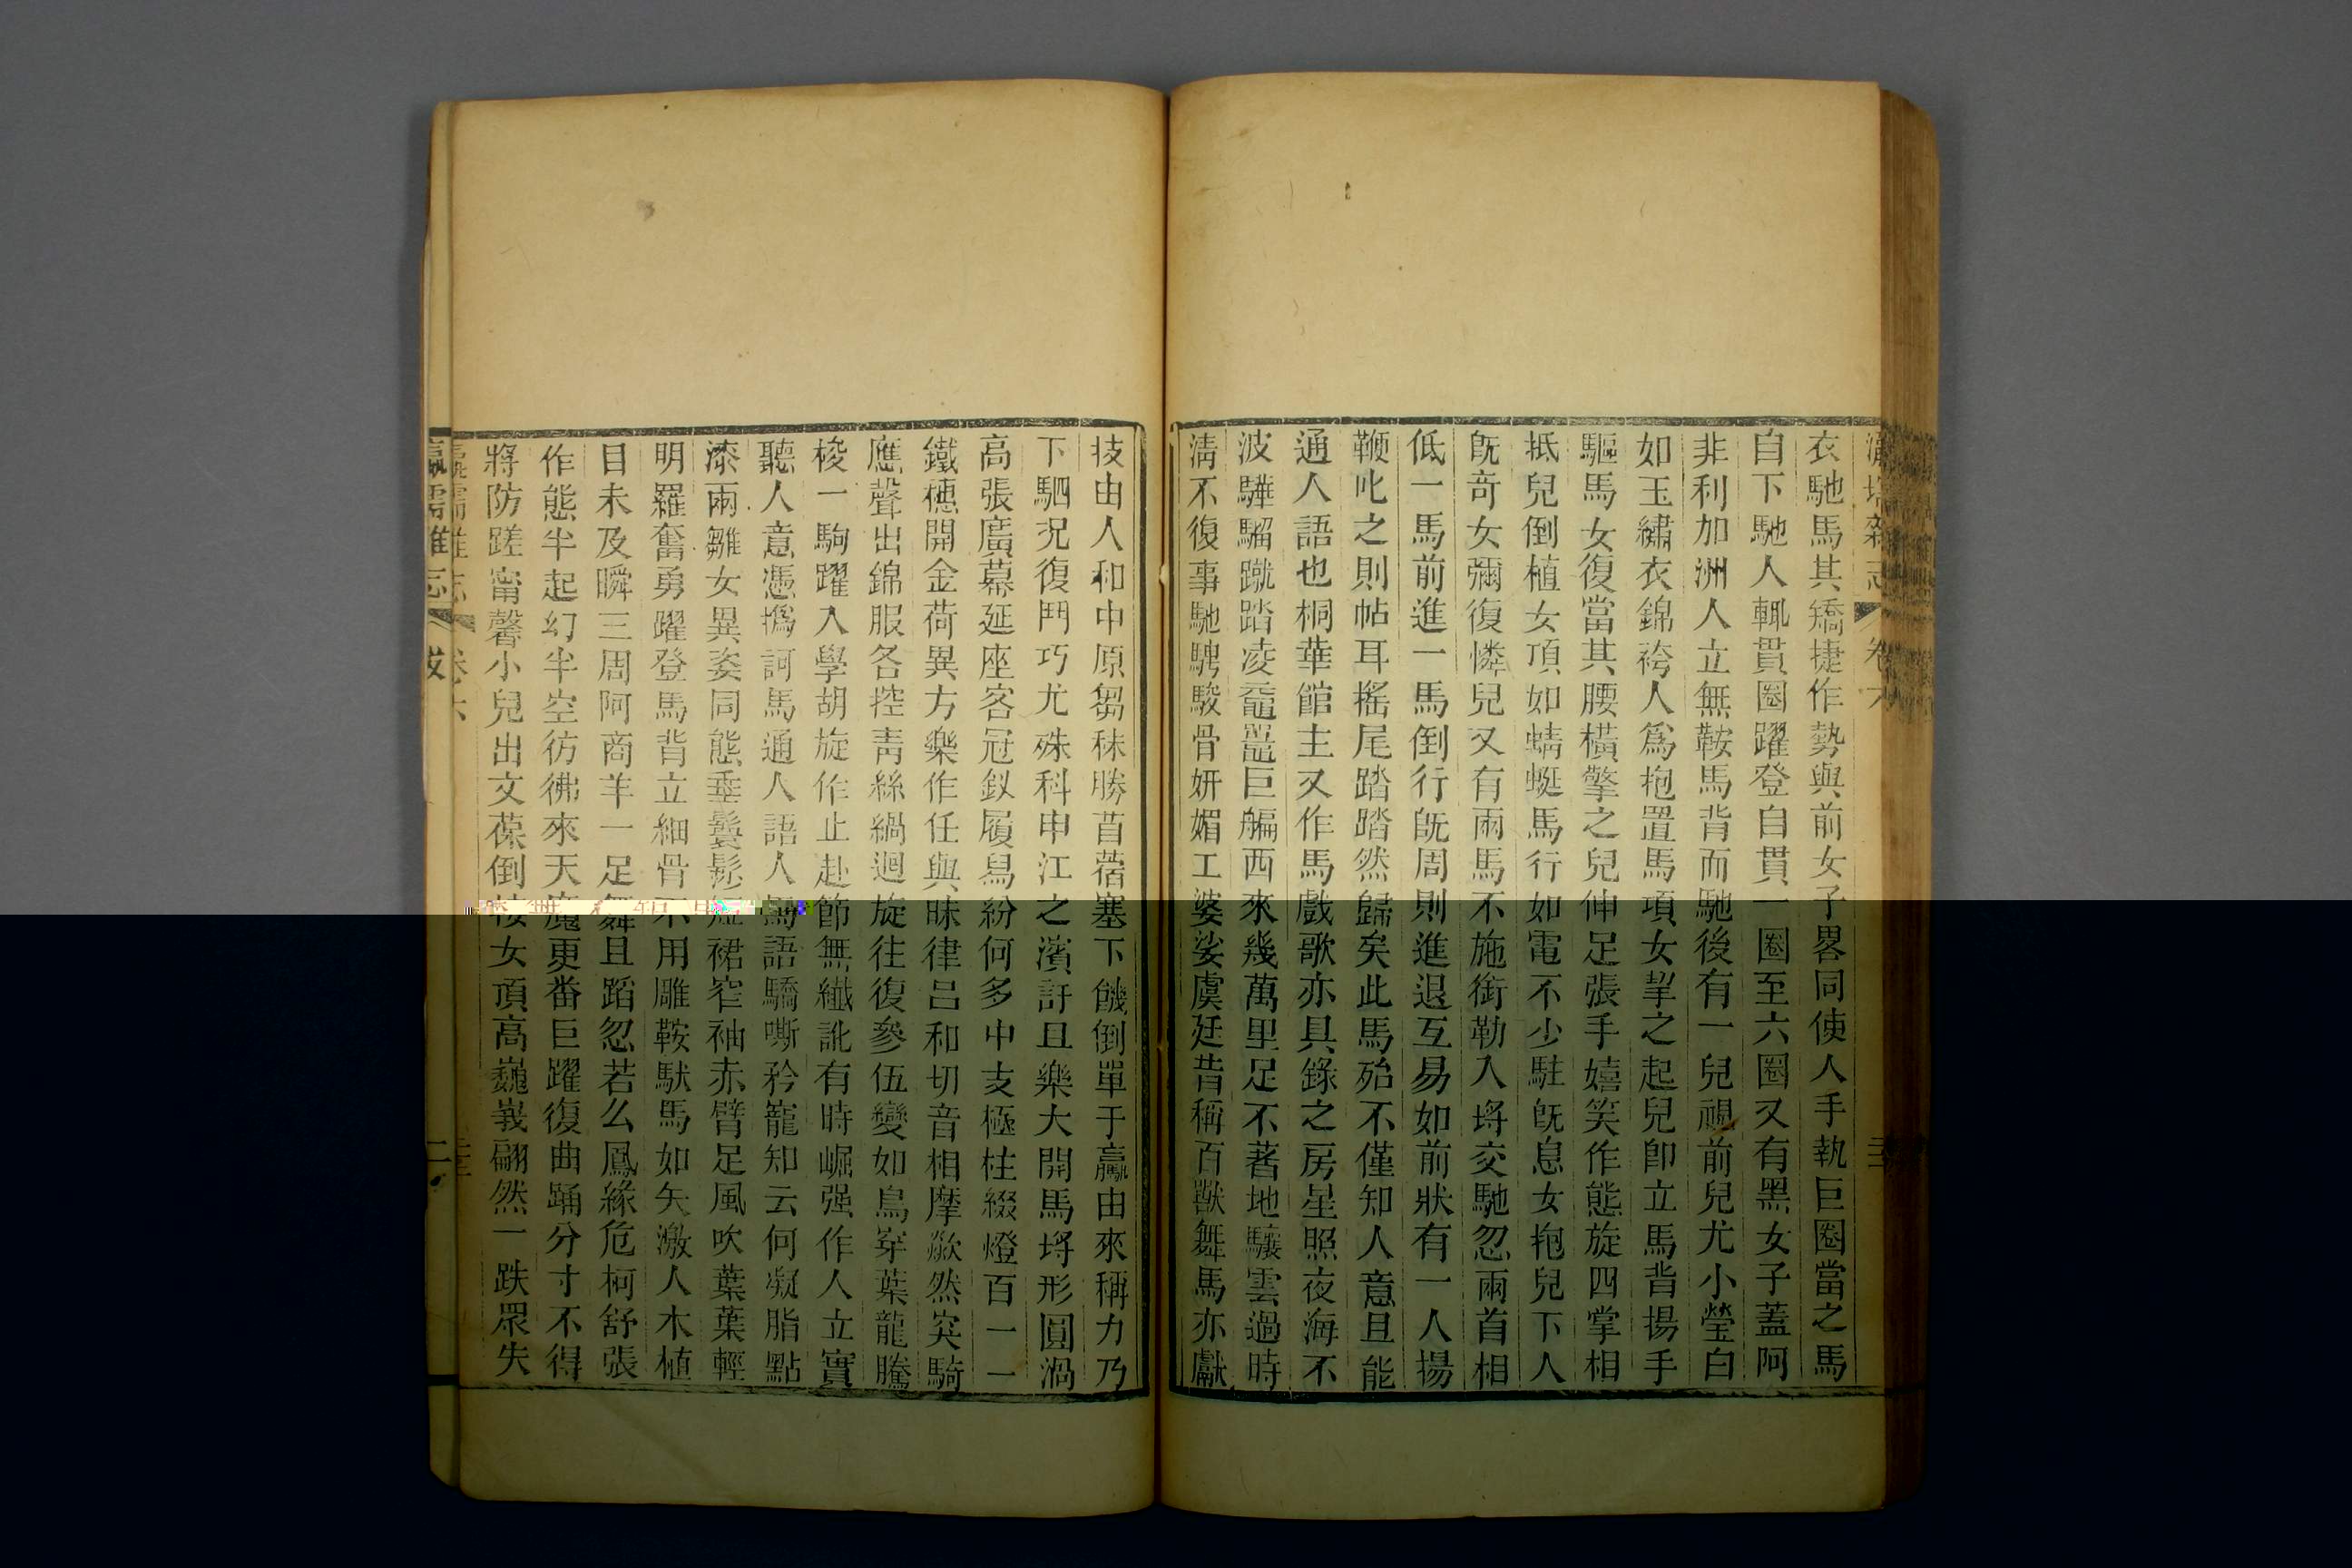 瀛壖雜志 卷六
衣馳馬其矯捷作勢與前女子畧同使人手執巨圈當之馬
自下馳人輒貫圈躍登自貫一圈至六圈又有黑女子蓋阿
非利加洲人立無鞍馬背而馳後有一兒視前兒尤小瑩白
如玉繡衣錦袴人爲抱置馬項女挈之起兒卽立馬背揚手
驅馬女復當其腰橫擎之兒伸足張手嬉笑作態旋四掌相
抵兒倒植女頂如蜻蜓馬行如電不少駐旣息女抱兒下人
旣奇女彌復憐兒又有兩馬不施銜勒入埒交馳忽兩首相
低一馬前進一馬倒行旣周則進退互易如前狀有一人揚
鞭叱之則帖耳搖尾踏踏然歸矣此馬殆不僅知人意且能
通人語也桐華館主又作馬戲歌亦具錄之房星照夜海不
波驊騮蹴踏凌黿鼉巨艑西來幾萬里足不著地驤雲過時
淸不復事馳騁駿骨妍媚工婆娑虞廷昔稱百獸舞馬亦獻
技由人和中原芻秣勝苜蓿塞下餓倒單于驘由來稱力乃
下駟況復鬥巧尤殊科申江之濱訏且樂大開馬埒形圓渦
高張廣幕延座客冠釵履舃紛何多中支極柱綴燈百一一
鐵穗開金荷異方樂作任與昧律呂和切音相摩歘然突騎
應聲出錦服各控靑絲緺迴旋往復參伍變如鳥穿葉龍騰
梭一駒躍入學胡旋作止赴節無纖訛有時崛强作人立實
聽人意憑撝訶馬通人語人馬語驕嘶矜寵知云何凝脂點
漆兩雛女異姿同態垂鬟髿短裙窄袖赤臂足風吹葉葉輕
明羅奮勇躍登馬背立細骨不用雕鞍馱馬如矢激人木植
目未及瞬三周阿商羊一足舞且蹈忽若么鳳緣危柯舒張
作態半起幻半空彷彿來天魔更番巨躍復曲踊分寸不得
將防蹉甯馨小兒出文葆倒按女頂高巍峩翩然一跌眾失
卷六